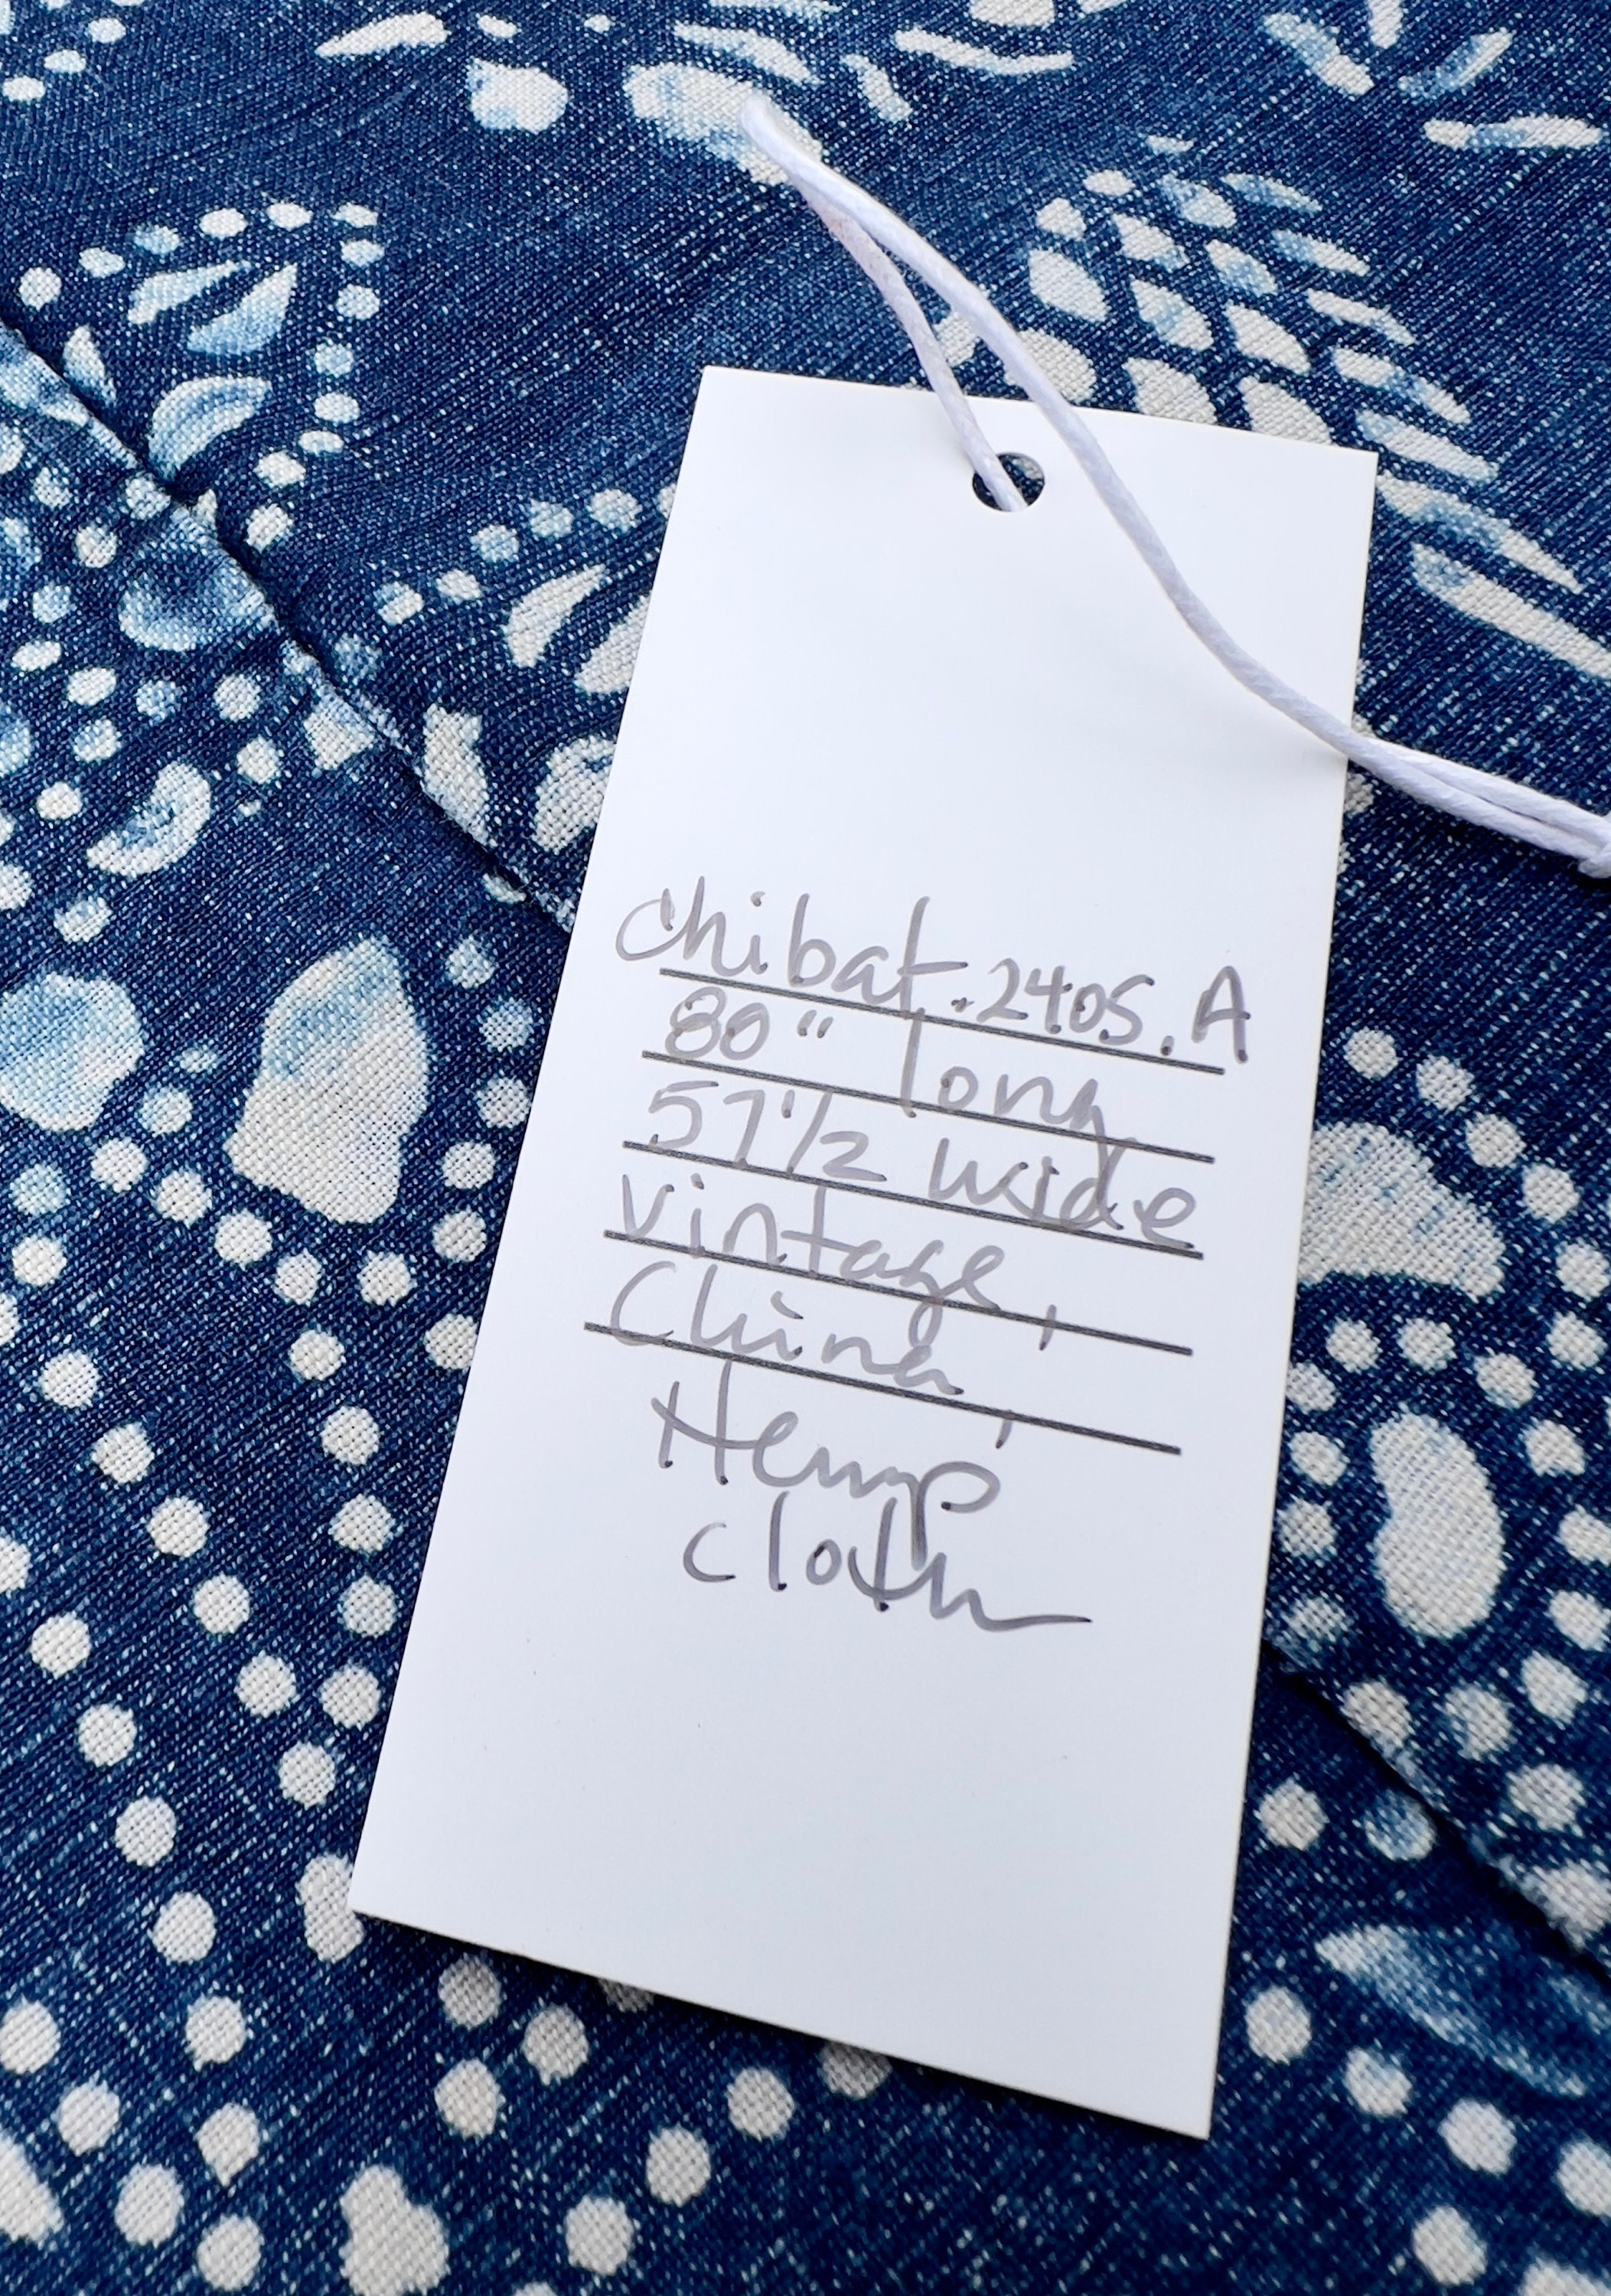 Chibat.2405.A
80" long
57 1/2 wide
vintage,
China,
Hemp
cloth